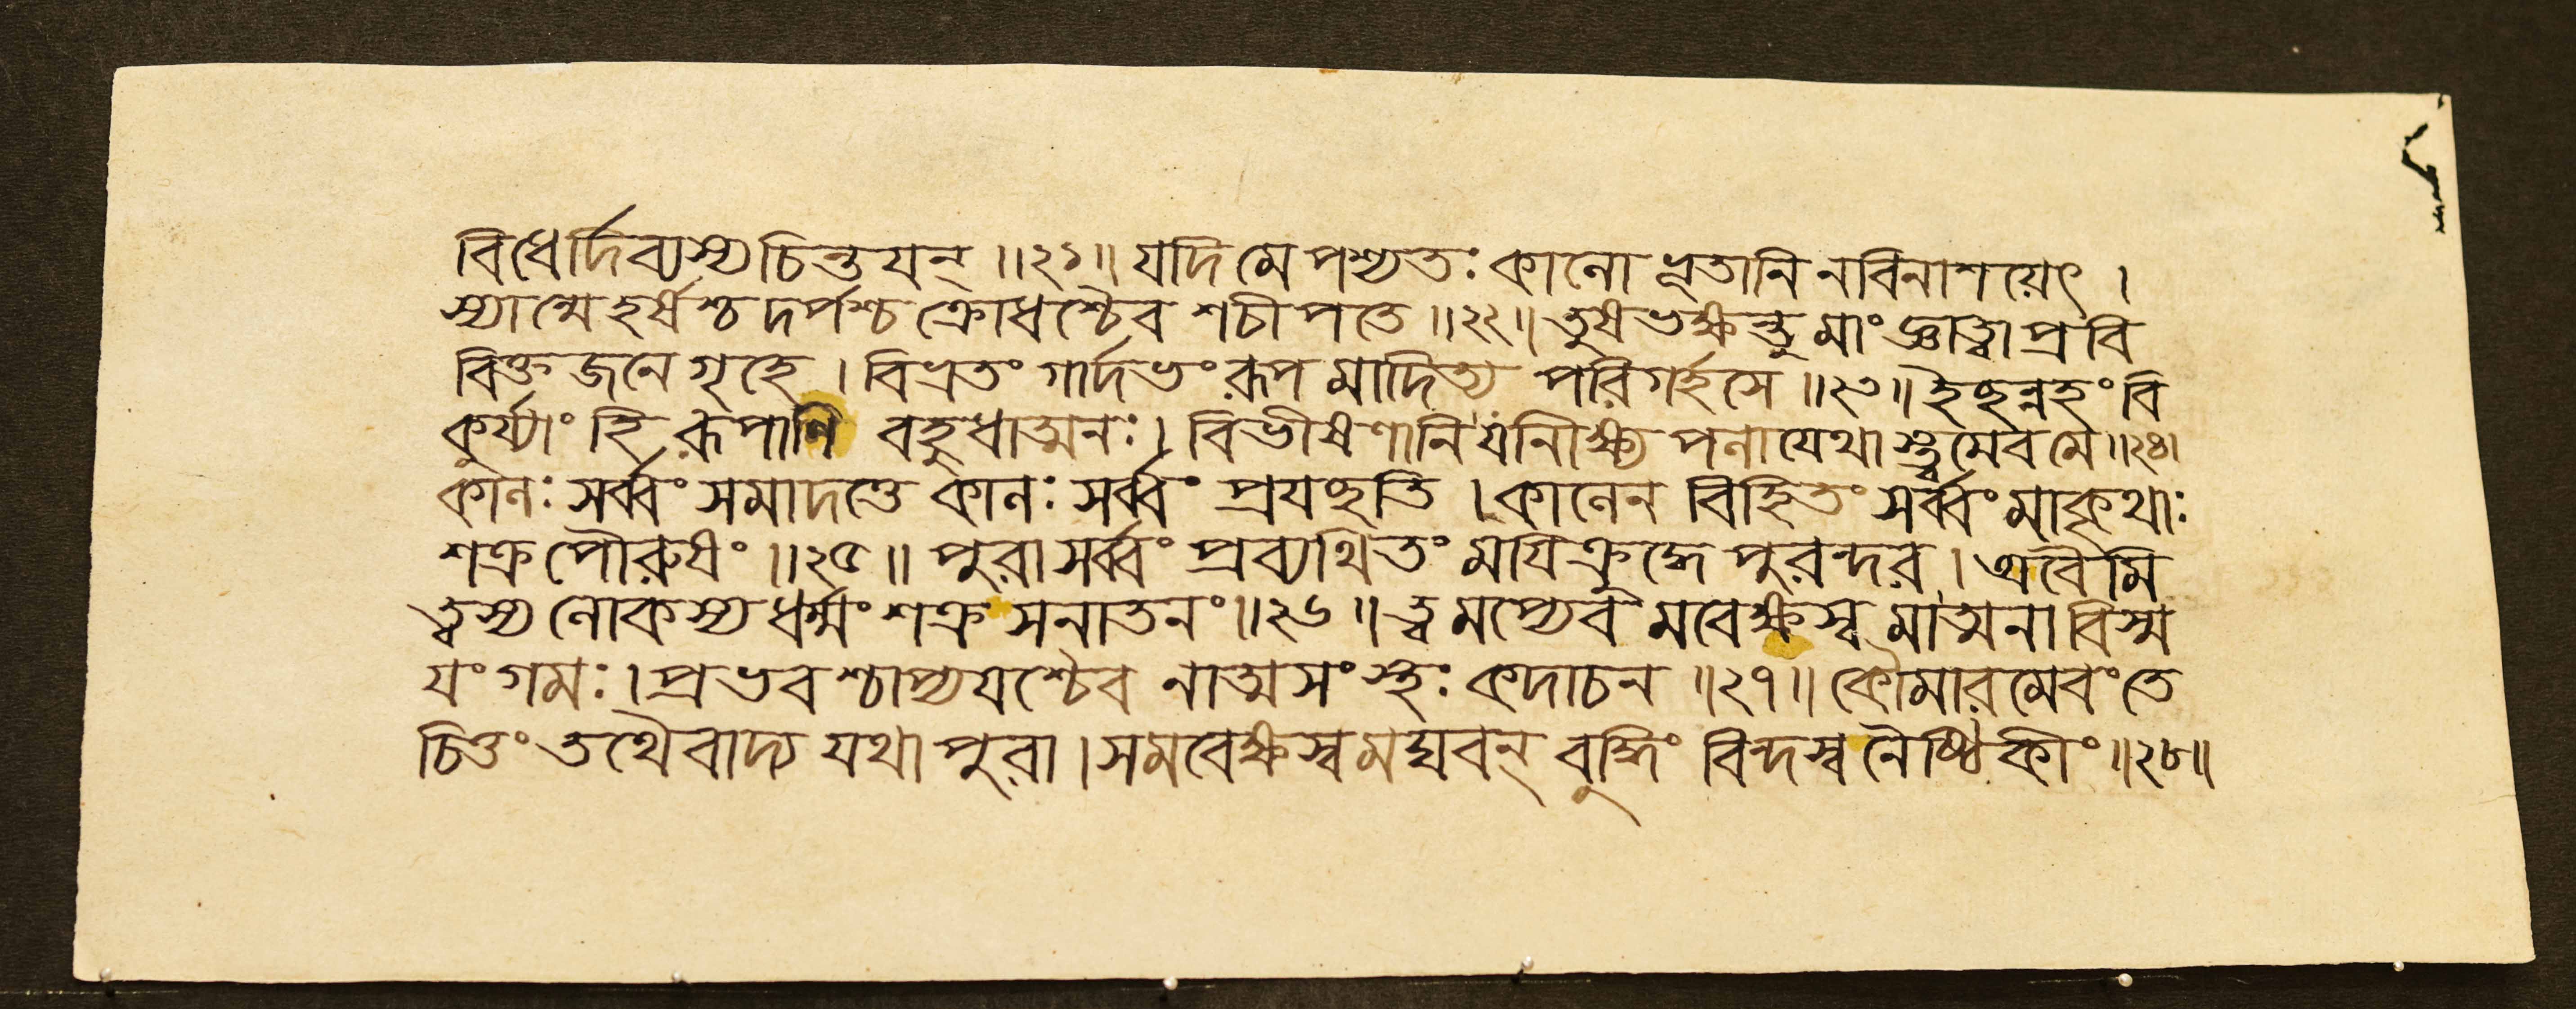 বিধের্দিব্যস্য চিন্তয়ন্ ॥২১॥ যদি মে পশ্যতঃ কালো ভূতানি ন বিনাশয়েৎ ।
স্যান্মে হর্ষশ্চ দর্পশ্চ ক্রোধশ্চৈব শচীপতে ॥২২॥ তুষভক্ষন্তু মাং জ্ঞাত্বা প্রবি
বিক্তজনে গৃহে । বিভ্রতং গার্দভং রূপমাদিত্য পরিগর্হসে ॥২৩॥ ইচ্ছন্নহং বি
কুর্য্যাং হি রূপাণি বহুধাত্মনঃ । বিভীষণানি যানীক্ষ্য পলায়েথাস্ত্বমেব মে ॥২৪॥
কালঃ সর্ব্বং সমাদত্তে কালঃ সর্ব্বং প্রযচ্ছতি । কালেন বিহিতং সর্ব্বং মা কৃথাঃ
শক্র পৌরুষং ॥২৫॥ পুরা সর্ব্বং প্রব্যথিতং ময়ি ক্রুদ্ধে পুরন্দর । অবৈমি
ত্বস্য লোকস্য ধর্ম্মং শক্র সনাতনং ॥২৬॥ ত্বমপ্যেবমবেক্ষস্ব মাত্মনা বিস্ম
য়ং গমঃ । প্রভবশ্চাপ্যয়শ্চৈব নাত্মসংস্থঃ কদাচন ॥২৭॥ কৌমারমেবং তে
চিত্তং তথৈবাদ্য যথা পুরা । সমবেক্ষস্ব মঘবন্ বুদ্ধিং বিন্দস্ব নৈষ্ঠিকীং ॥২৮॥